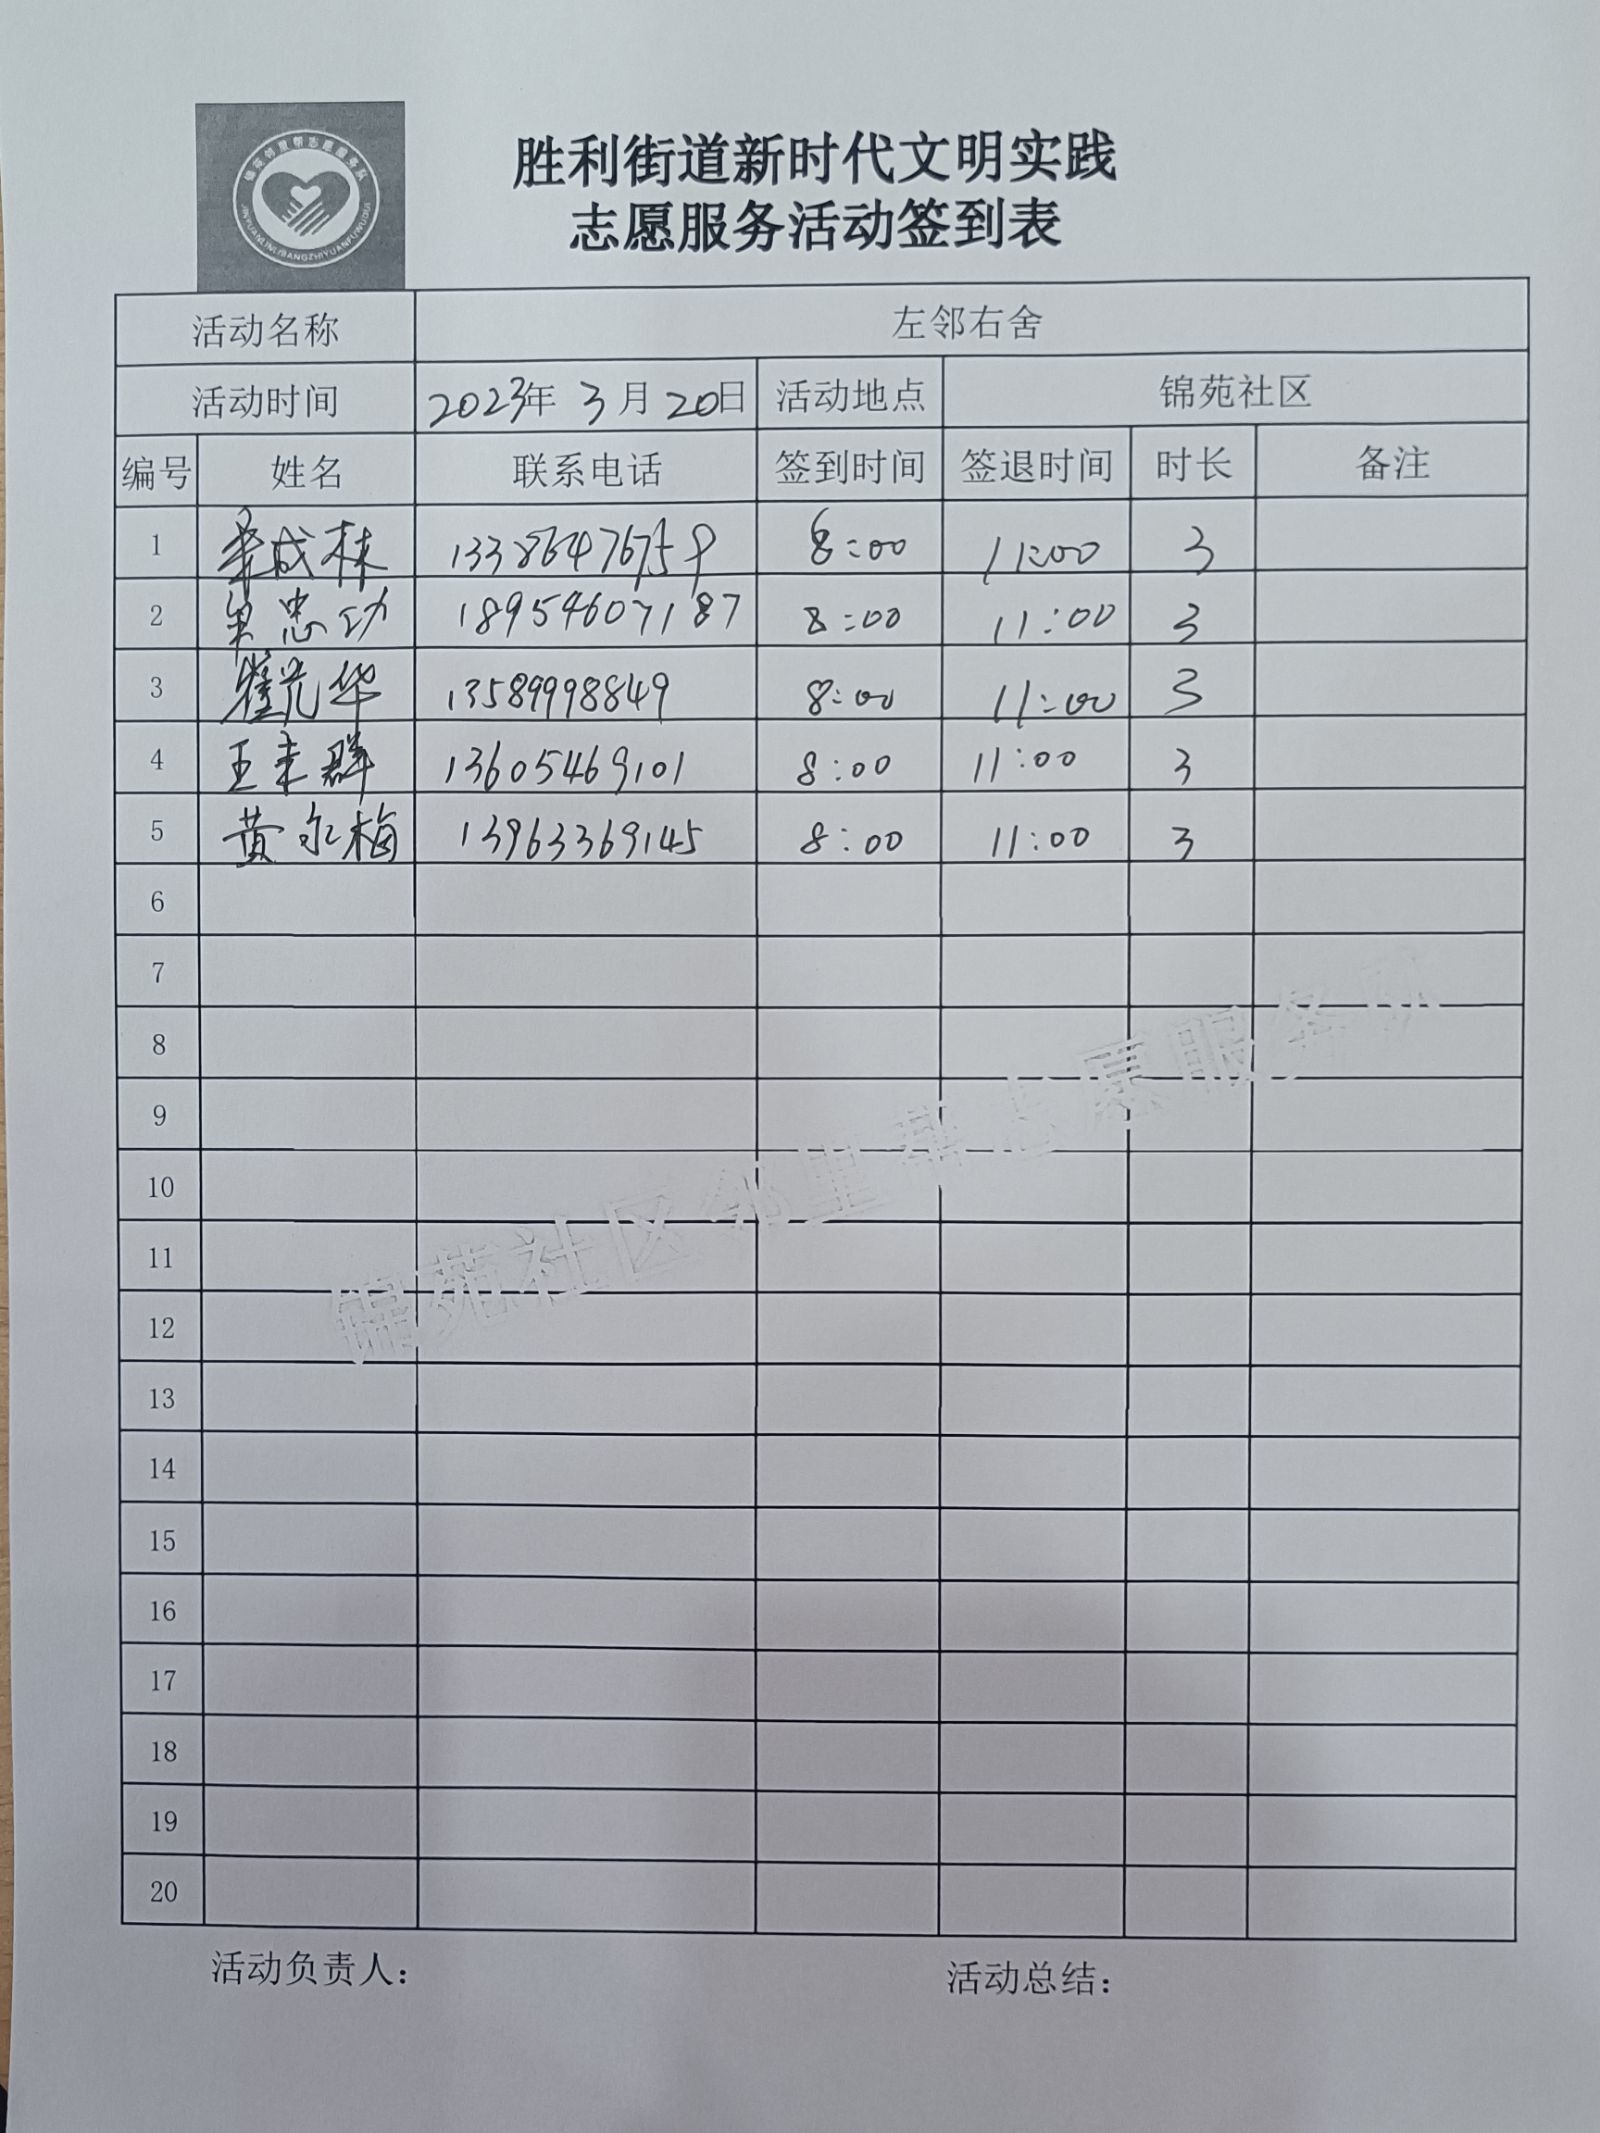 锦苑邻里帮志愿服务队
JINYUANLINLIBANGZHIYUANFUWUDUI
胜利街道新时代文明实践
志愿服务活动签到表
活动名称 左邻右舍
活动时间 2023年 3月 20日 活动地点 锦苑社区
编号 姓名 联系电话 签到时间 签退时间 时长 备注
1 成林 8:00 11:00 3
2 忠功 18954607187 8:00 11:00 3
3 华 13589998849 8:00 11:00 3
4 王来群 13605469101 8:00 11:00 3
5 黄永梅 13963369145 8:00 11:00 3
6
7
8
9
10
11
12
13
14
15
16
17
18
19
20
锦苑社区邻里帮志愿服务队
活动负责人： 活动总结：